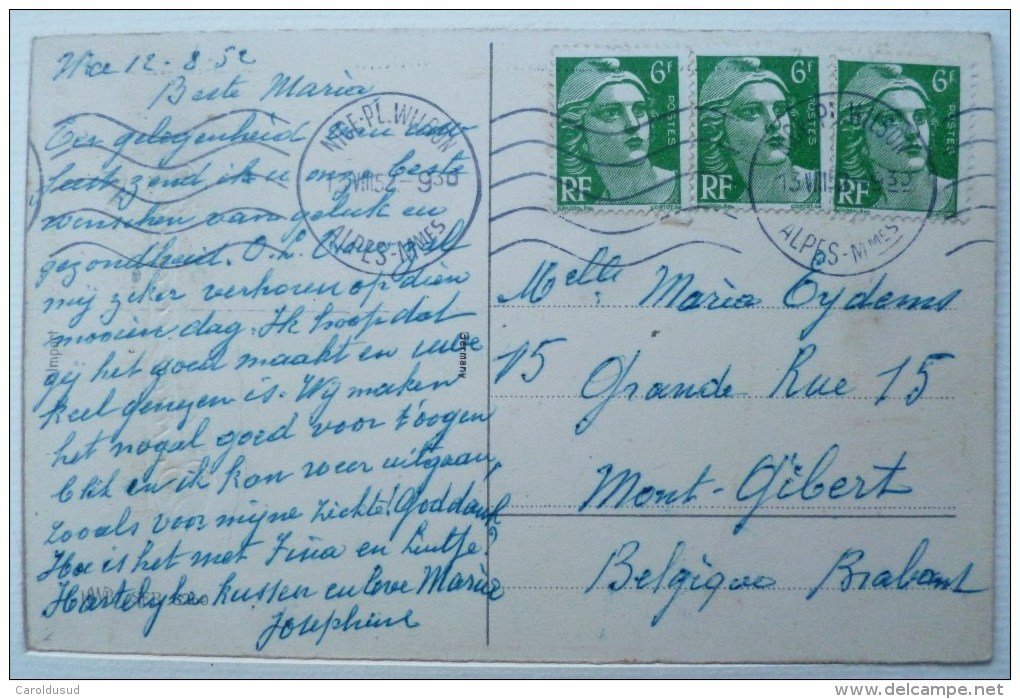 Nice 12-8-52
Beste Maria
Ter gelegenheid van uw
feest zend ik u onze beste
wenschen van geluk en
gezondheit. O.L. Vrouw zal
mij zeker verhoren op dien
mooien dag. Ik hoop dat
gij het goed maakt en uwe
keel genezen is. Wij maken
het nogal goed voor t'oogen
blik en ik kan weer uitgaan,
zooals voor mijne ziekte! Goddank
Hoe is het met Fina en
Hartelyke kussen en Maria
Josephine
NICE-PL. WILSON
13 VIII 52 - 930
ALPES-MMES
6F
POSTES
RF
6F
POSTES
RF
6F
POSTES
RF
NICE-PL. WILSON
13 VIII 52 - 930
ALPES-MMES
Melle Maria Eydems
15 Grande Rue 15
Mont-Gibert
Belgique Brabant
Import
Germany
Caroldusud
www.delcampe.net